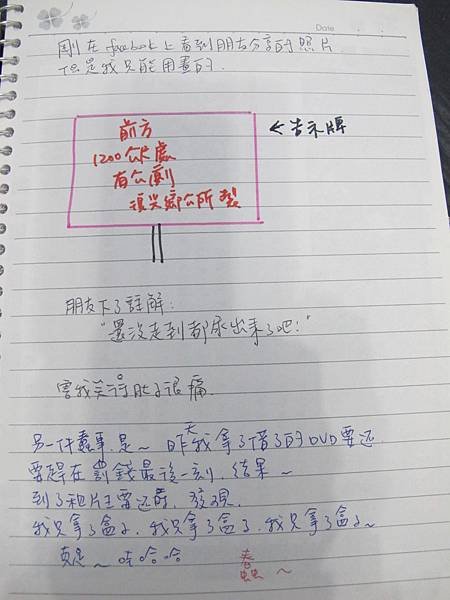 Date
剛在facebook上看到朋友分享的照片
但是我只能用畫的.
前方
1200公尺處
有公廁
鄉公所 製
←告示牌
朋友下了註解:
"還沒走到都尿出來了吧!"
害我笑得肚子很痛.
另一件蠢事是~ 昨天我拿了借了的DVD要還.
要趕在罰錢最後一刻. 結果~
到了租片王要還時, 發現.
我只拿了盒子, 我只拿了盒子, 我只拿了盒子~
真是~ 哇哈哈
蠢~